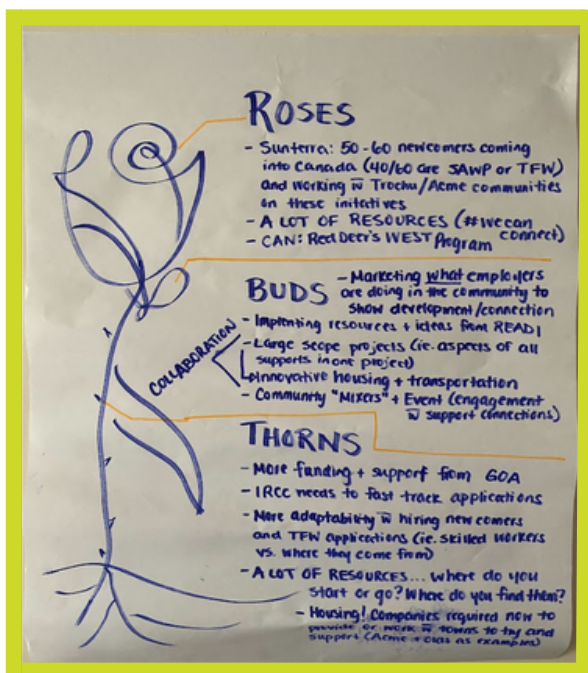 ROSES
- Sunterra: 50-60 newcomers coming
into Canada (40/60 are SAWP or TFW)
and working w̄ Trochu/Acme communities
on these initatives
- A LOT OF RESOURCES (#wecan
connect)
- CAN: Red Deer's WEST Program
BUDS
- Marketing what employers
are doing in the community to
show development/connection
- Implenting resources + ideas from READI
- Large scope projects (ie. aspects of all
supports in one project)
COLLABORATION
- Innovative housing + transportation
- Community "MIXERS" + Event (engagement
w̄ support connections)
THORNS
- More funding + support from GOA
- IRCC needs to fast track applications
- More adaptability w̄ hiring newcomers
and TFW applications (ie. skilled workers
vs. where they come from)
- A LOT OF RESOURCES... where do you
start or go? Where do you find them?
- Housing! Companies required now to
provide or work w̄ towns to try and
support (Acme + Olds as examples)